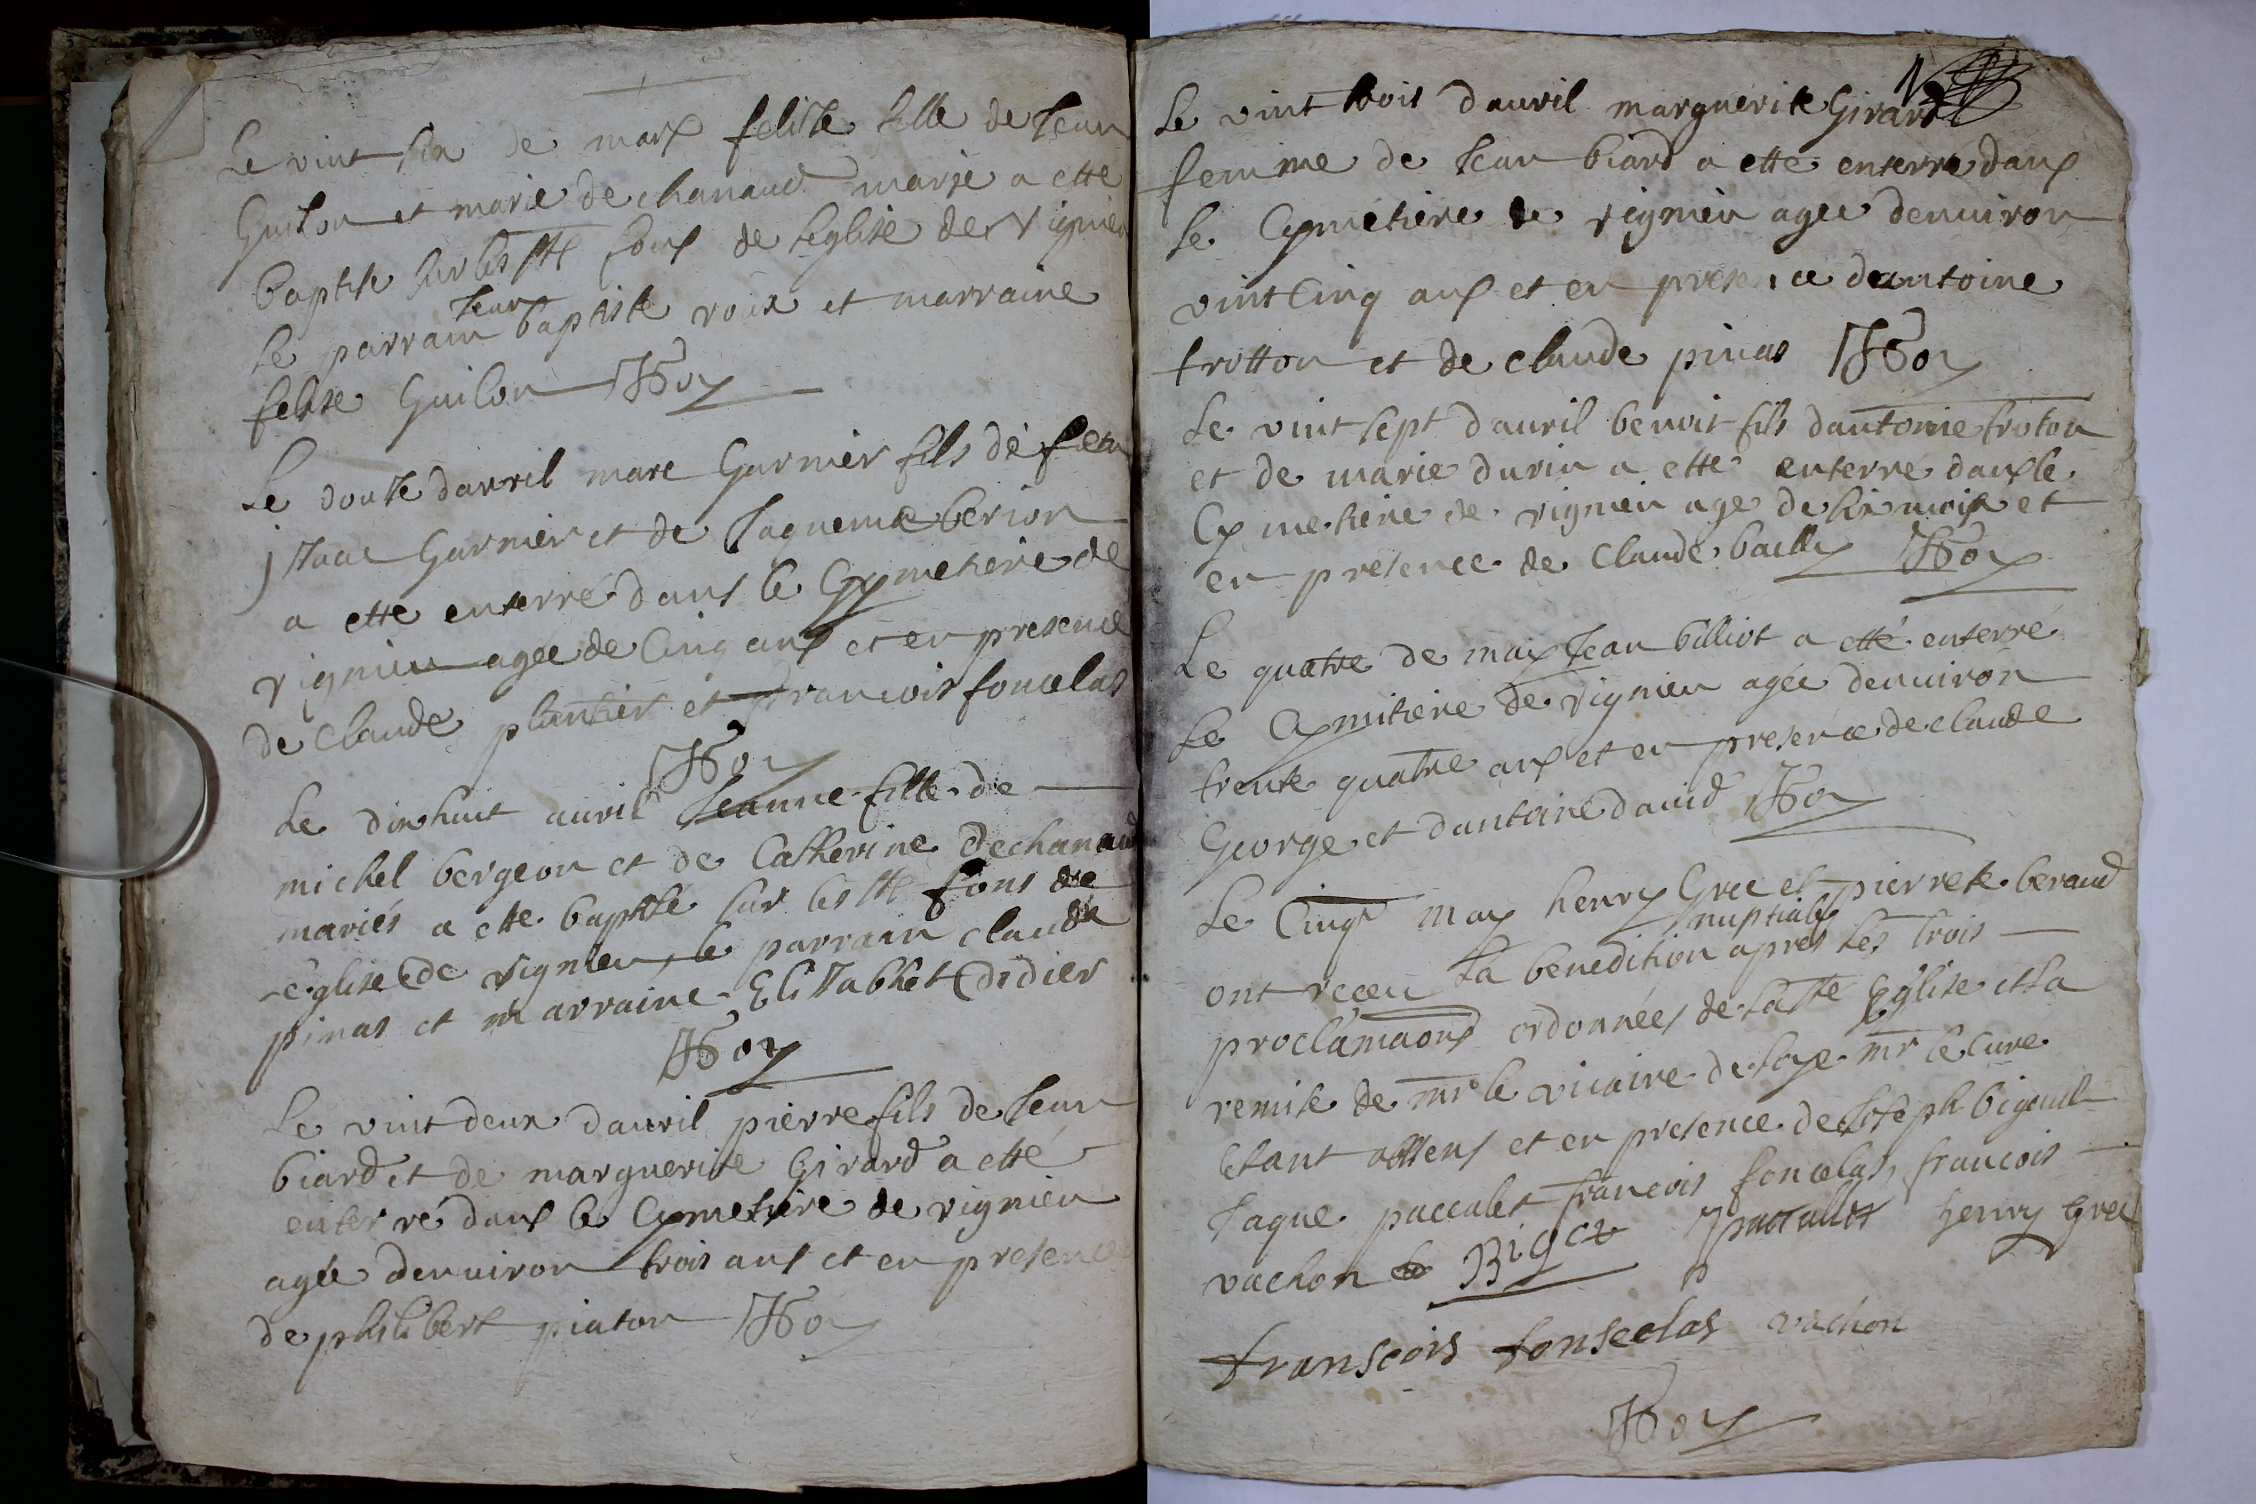 Le vint six de mars felise fille de Jean
Guilon et marie dechanaud marie a ette
baptise sur les stts fons de leglise de vignieu
le parrain Jean baptiste roux et marraine
felise Guilon
Le douse davril marc Garnier fils de feu
jsaac Garnier et de Jaqueme berion
a ette enterré dans le Cymetiere de
vignieu agée de Cinq ans et en presence
de Claude plantier et francois foncelas
Le dixhuit auril Jeanne fille de
michel bergeon et de Catherine dechanaud
mariés a ette baptisé sur les stts fons de
leglise de vignieu le parrain claude
pinas et marraine Elissabhet didier
Le vint deux dauril pierre fils de Jean
biard et de marguerite Girard a etté
enterré dans le Cymetiere de vignieu
agée denuiron trois ans et en presence
de philibert piaton
Le vint trois dauril marguerite Girard
femme de Jean biard a ette enterré dans
le Cymetiere de vignieu agee denuiron
vint Cinq ans et en presence dantoine
trotton et de claude pinas
Le vint sept dauril benoit fils dantoine troton
et de marie durin a etté enterré dans le
Cymetiere de vignieu age de six mois et
en presence de Claude bailly
Le quatre de may Jean billiot a etté enterré
le Cymitiere de vignieu agée denuiron
trente quatre ans et en presence de claude
George et dantoine dauid
Le Cinqr may henry Gree et pierrete beraud
ont receu la benedition nuptiale apres les trois
proclamaons ordonnées de la ste Eglise et la
remise de mr le vicaire de loye mr le Curé
etant absens et en presence de Joseph bigeult
Jaque paccalet francois foncelas, francois
vachon Biget paccallet henry Gree
franscois fonseclas vachon